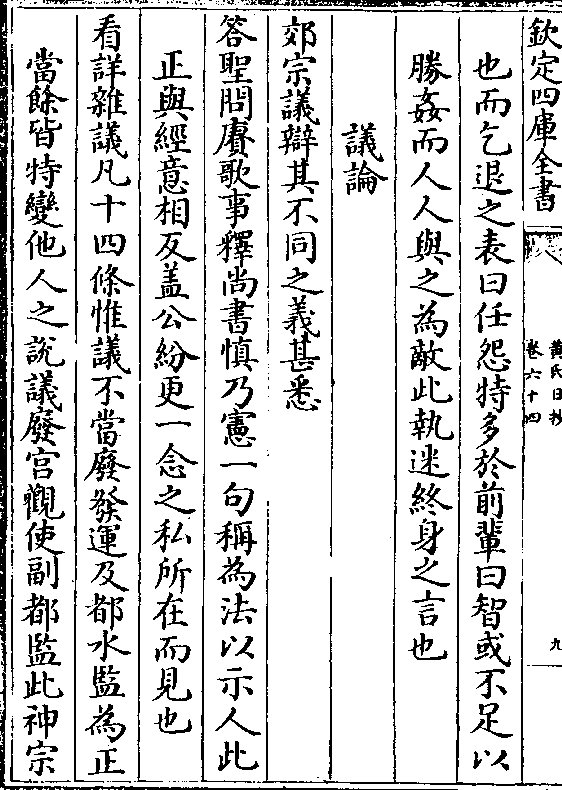 欽定四庫全書
黃氏日抄
卷六十四
九
也而乞退之表曰任怨特多於前輩曰智或不足以
勝姦而人人與之為敵此執迷終身之言也
議論
郊宗議辯其不同之義甚悉
答聖問賡歌事釋尚書慎乃憲一句稱為法以示人此
正與經意相反盖公紛更一念之私所在而見也
看詳雜議凡十四條惟議不當廢發運及都水監為正
當餘皆特變他人之說議廢宫觀使副都監此神宗